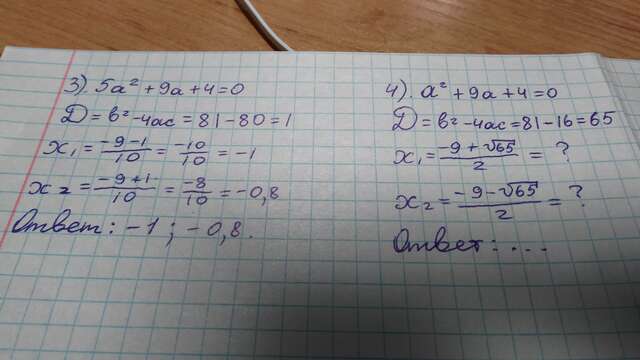 3). 5a² + 9a + 4 = 0
D = b² - 4ac = 81 - 80 = 1
x₁ = (-9-1)/10 = -10/10 = -1
x₂ = (-9+1)/10 = -8/10 = -0,8
Ответ: -1; -0,8.
4). a² + 9a + 4 = 0
D = b² - 4ac = 81 - 16 = 65
x₁ = (-9 + √65)/2 = ?
x₂ = (-9 - √65)/2 = ?
Ответ: ...